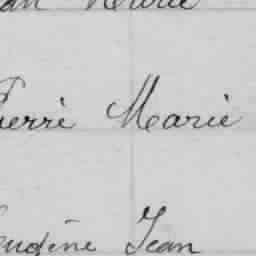 Marie
Pierre Marie
Eugène Jean